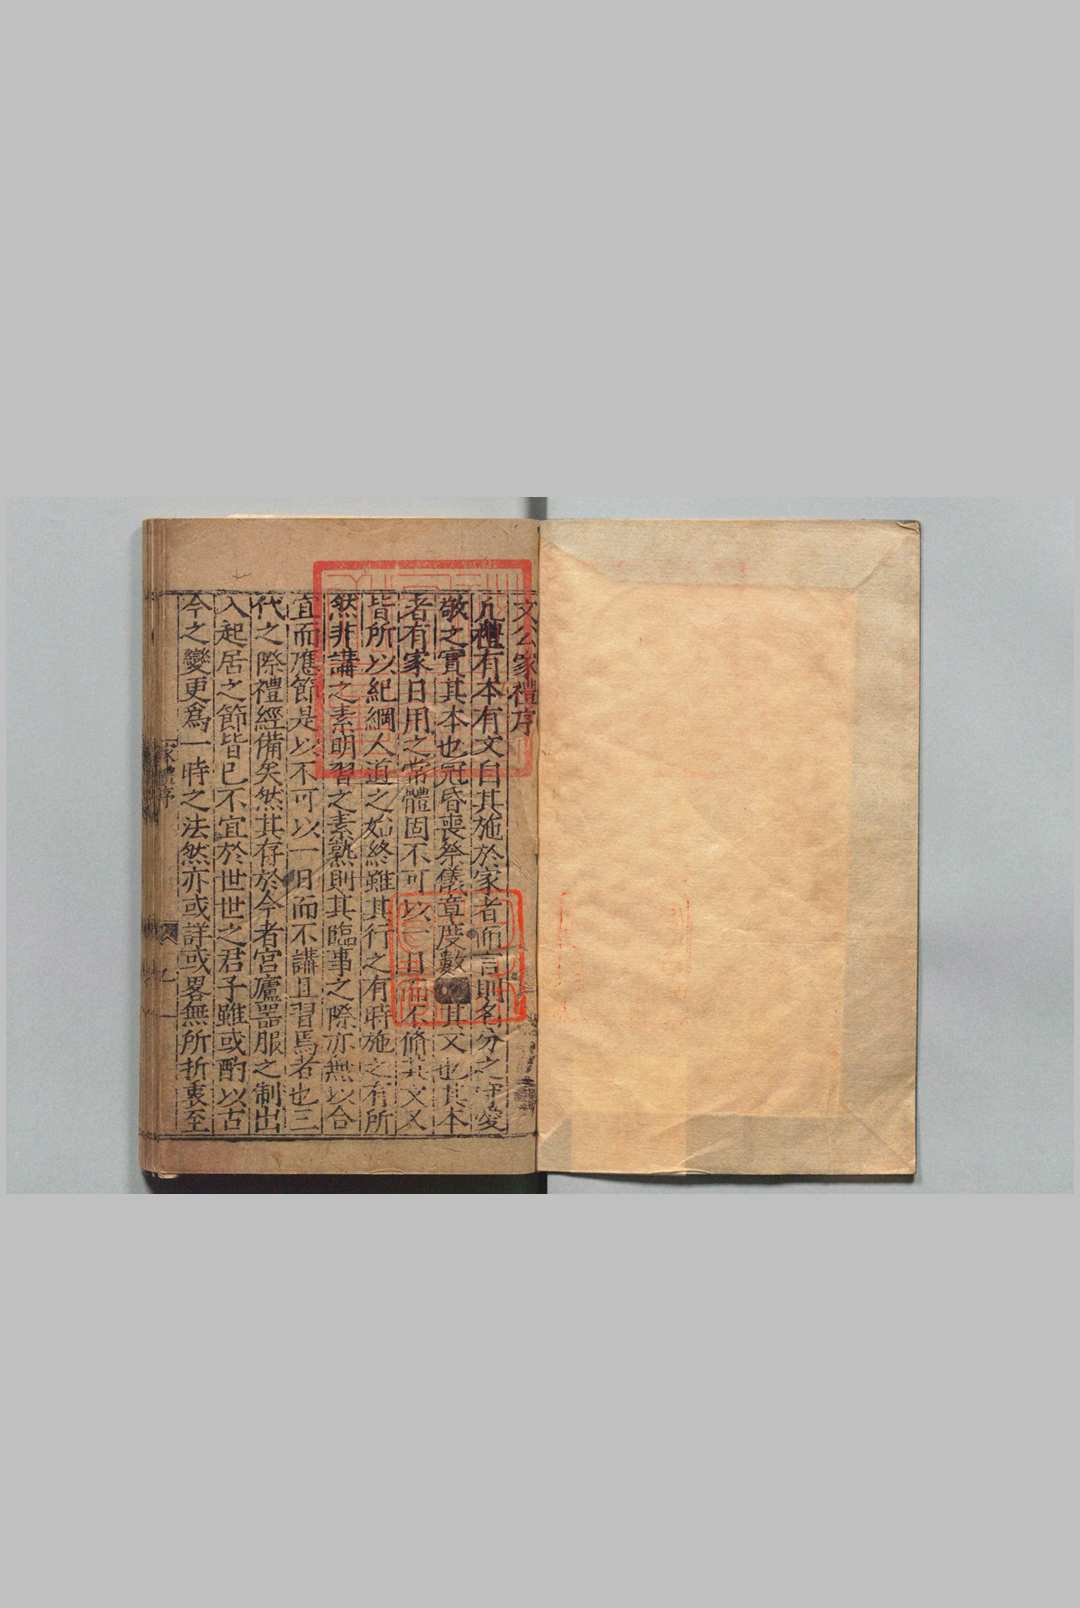 文公家禮序
凡禮有本有文自其施於家者而言則名分之守愛
敬之實其本也冠昏喪祭儀章度數其文也其本
者有家日用之常體固不可以一日而不脩其文又
皆所以紀綱人道之始終雖其行之有時施之有所
然非講之素明習之素熟則其臨事之際亦無以合
宜而應節是以不可以一日而不講且習焉者也三
代之際禮經備矣然其存於今者宮廬器服之制出
入起居之節皆已不宜於世世之君子雖或酌以古
今之變更爲一時之法然亦或詳或畧無所折衷至
家禮序